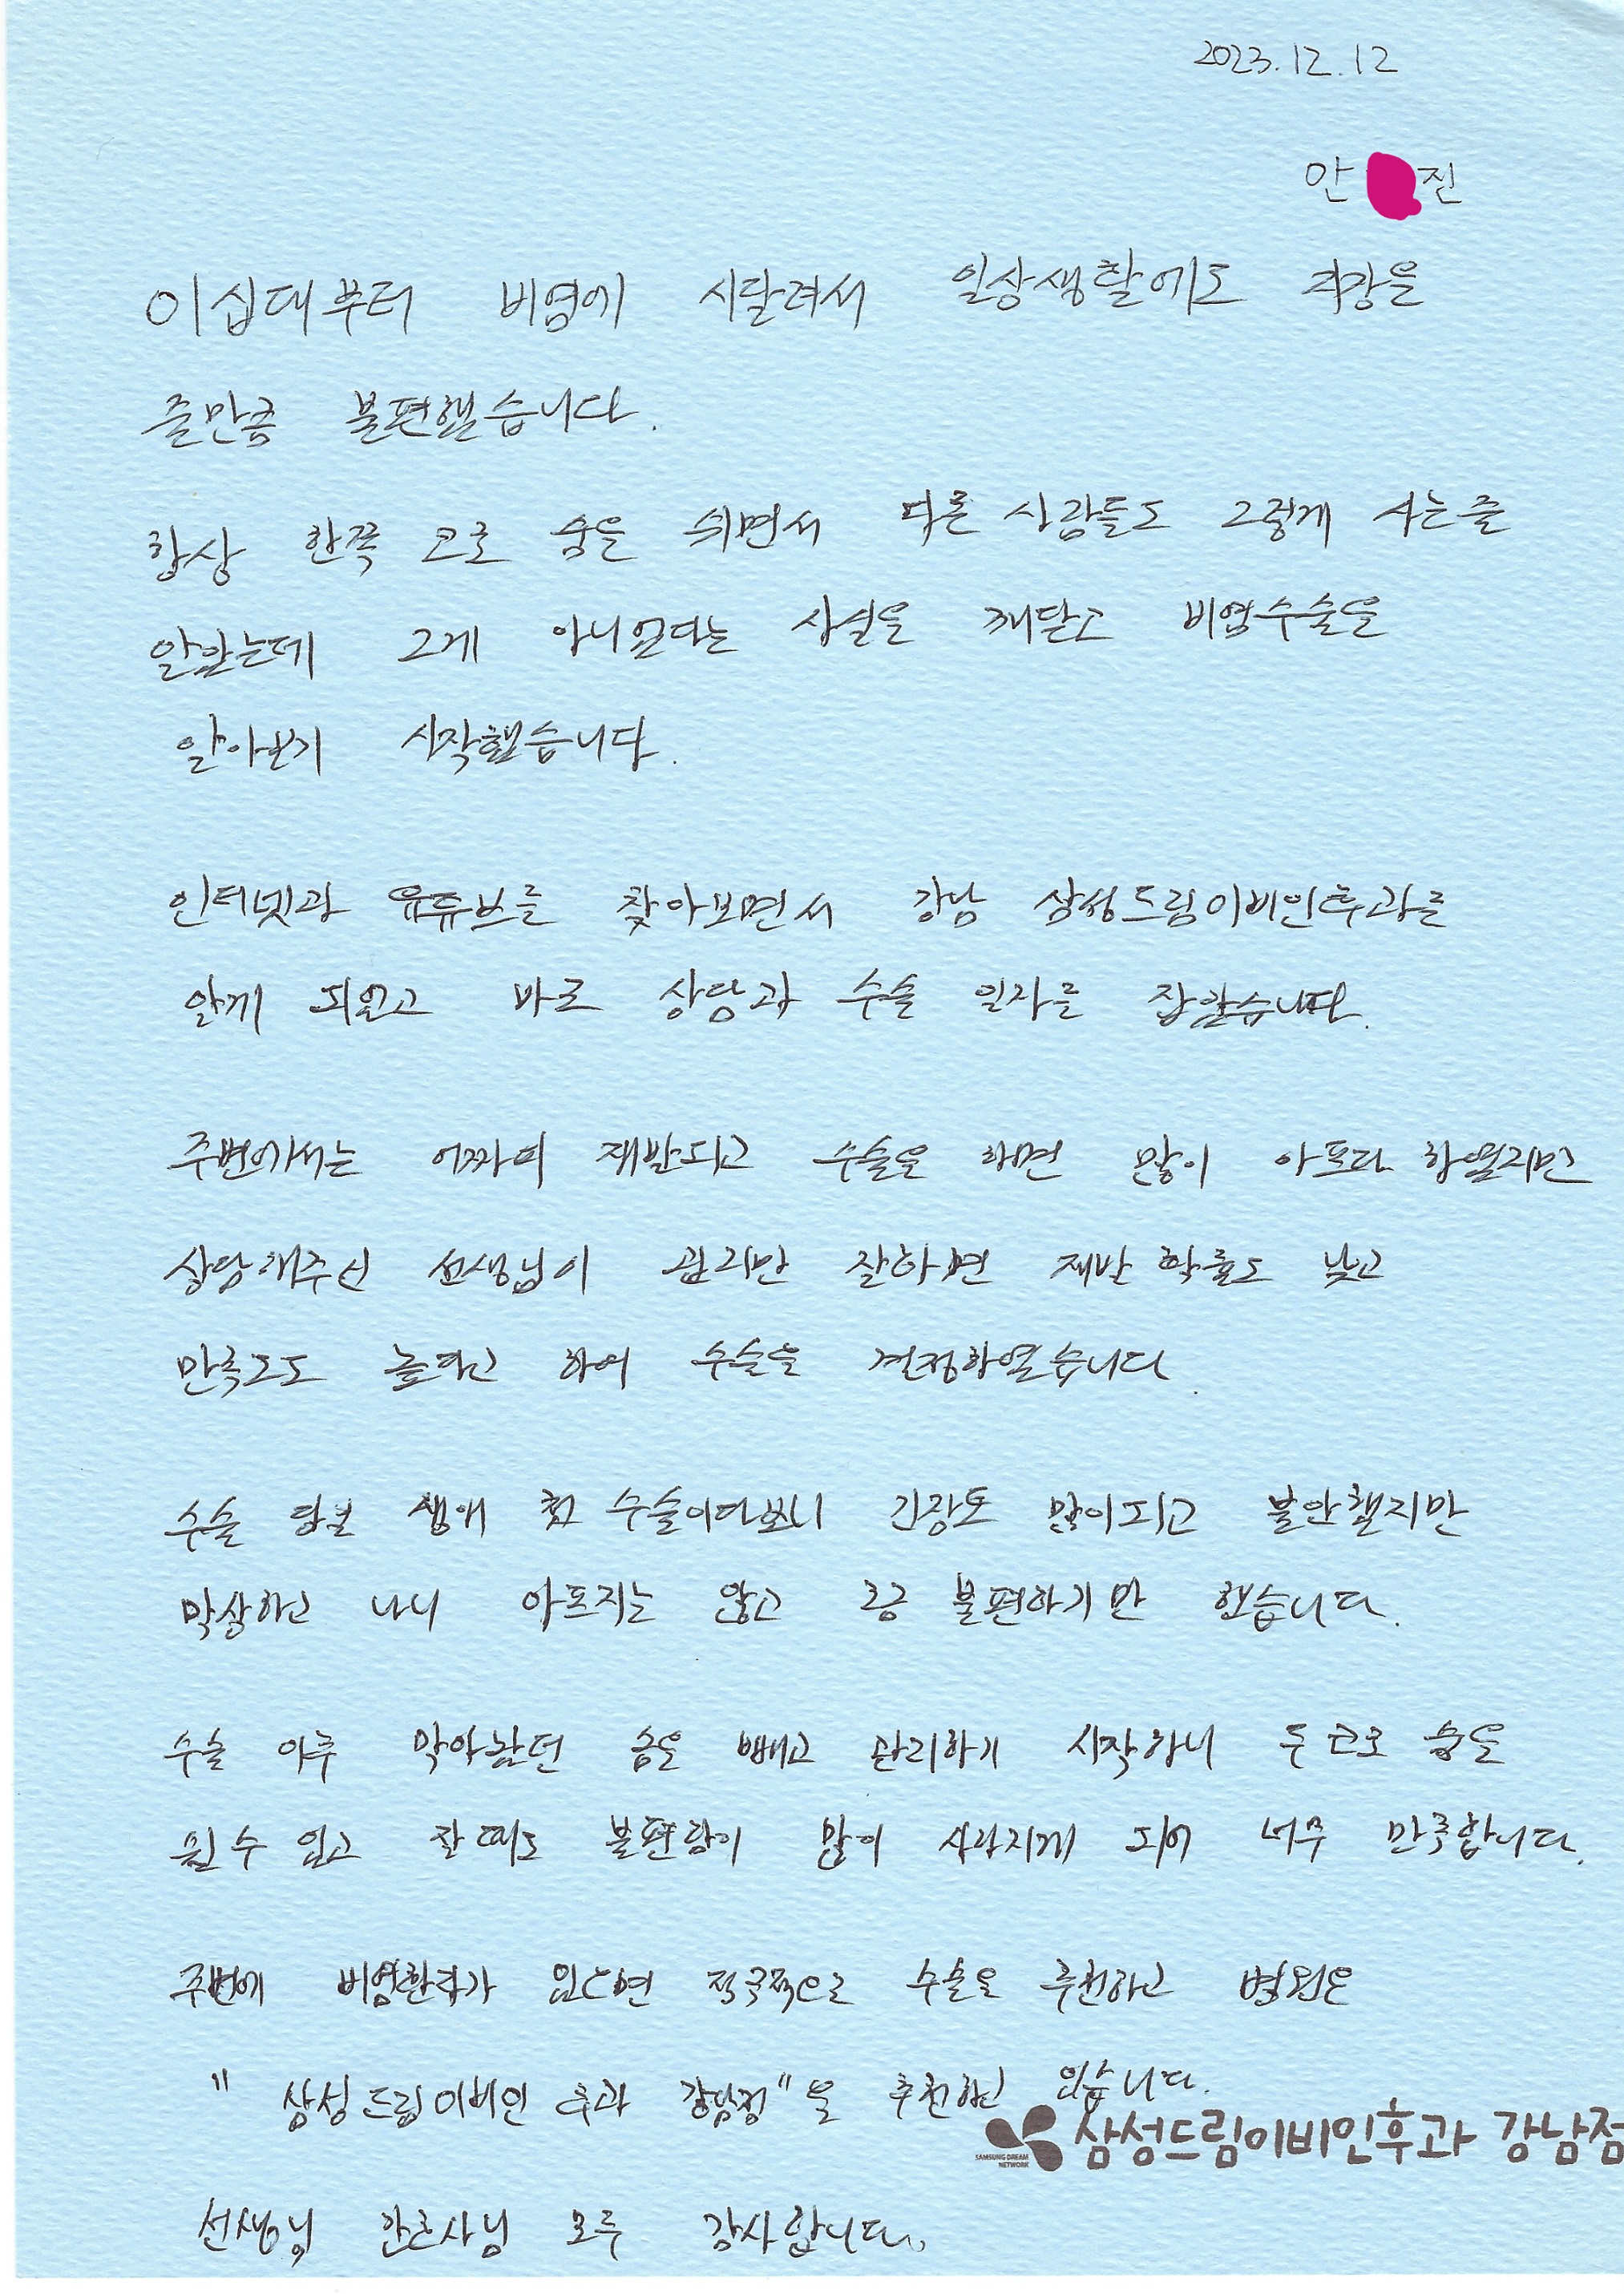 2023.12.12
안 진
이십대부터 비염에 시달려서 일상생활에도 지장을
줄만큼 불편했습니다.
항상 한쪽 코로 숨을 쉬면서 다른 사람들도 그렇게 사는줄
알았는데 그게 아니었다는 사실을 깨닫고 비염수술을
알아보기 시작했습니다.
인터넷과 유튜브를 찾아보면서 강남 삼성드림이비인후과를
알게 되었고 바로 상담과 수술 일자를 잡았습니다.
주변에서는 어짜피 재발되고 수술을 하면 많이 아프다 하였지만
상담해주신 선생님이 관리만 잘하면 재발 확률도 낮고
만족도도 높다고 하여 수술을 결정하였습니다.
수술 당일 생애 첫 수술이다보니 긴장도 많이되고 불안했지만
막상하고 나니 아프지는 않고 조금 불편하기만 했습니다.
수술 이후 막아놨던 솜을 빼고 관리하기 시작하니 두 코로 숨을
쉴 수 있고 잘 때도 불편함이 많이 사라지게 되어 너무 만족합니다.
주변에 비염환자가 있다면 적극적으로 수술을 추천하고 병원은
" 삼성드림이비인후과 강남점"을 추천하고 있습니다.
SAMSUNG DREAM NETWORK 삼성드림이비인후과 강남점
선생님, 간호사님 모두 감사합니다.